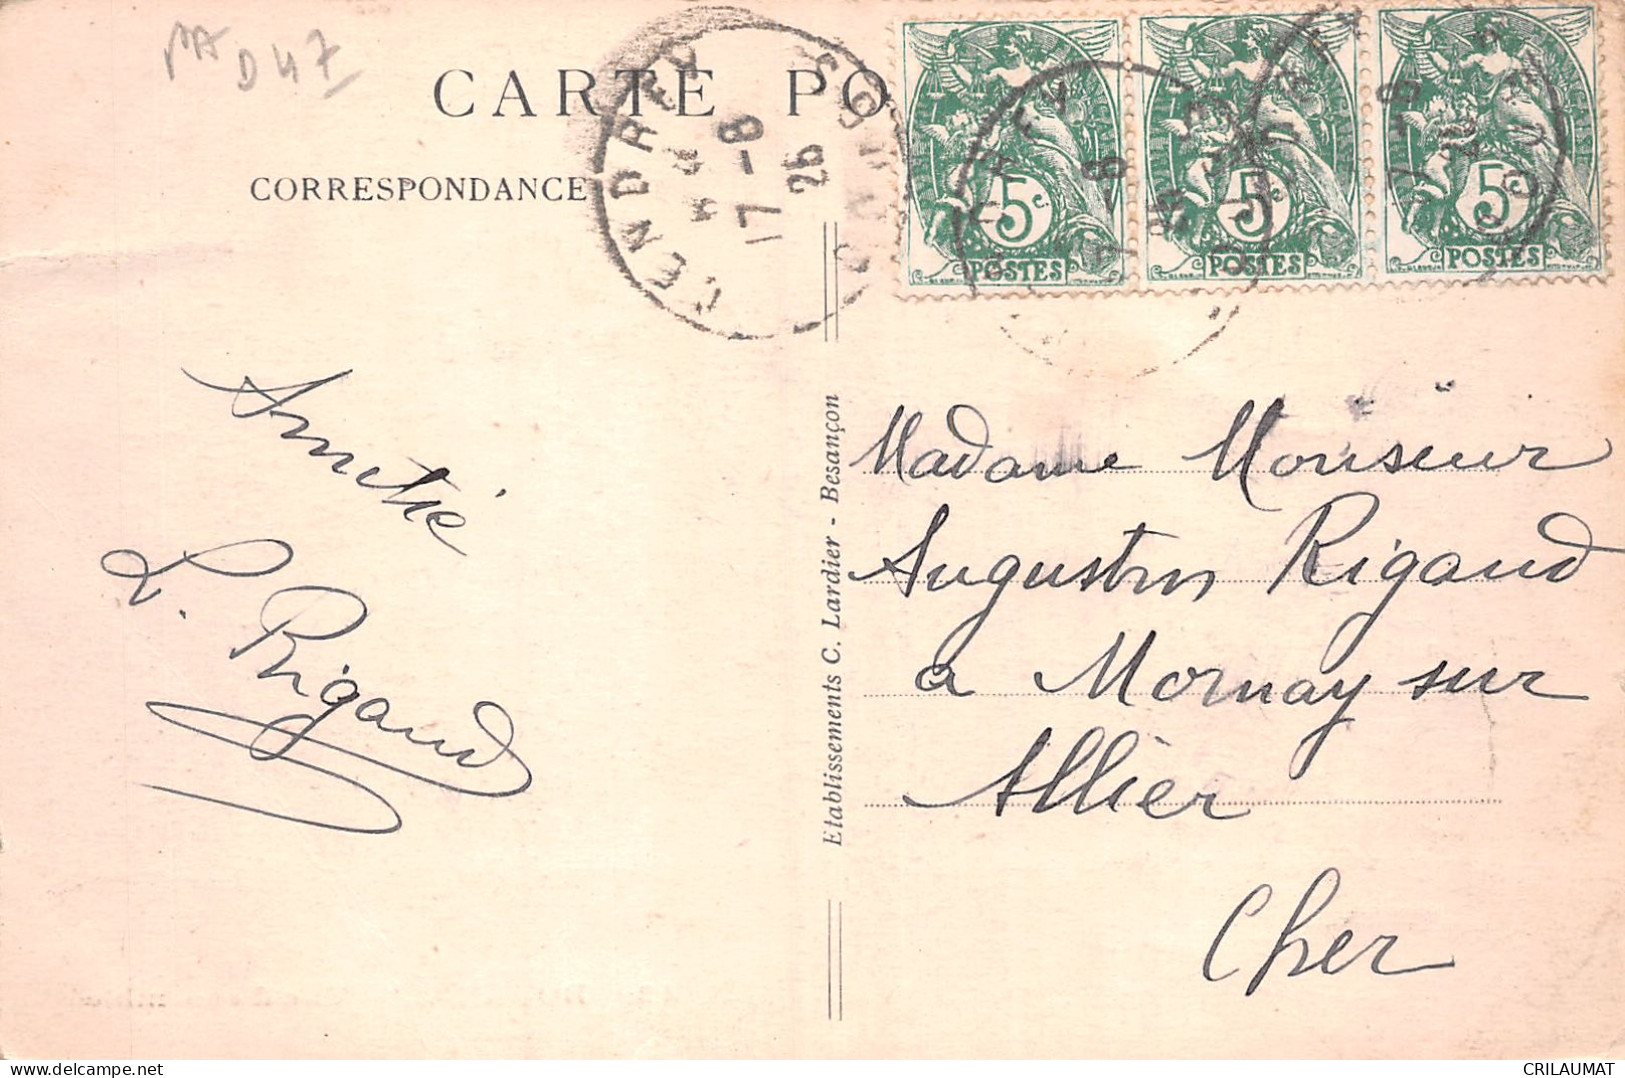 MA
D47
CARTE PO
CORRESPONDANCE
VENDREC
17-8
26
DOUBS
5c
POSTES
5c
POSTES
5c
POSTES
Amitié
L. Rigaud
Etablissements C. Lardier - Besançon
Madame Monsieur
Augustin Rigaud
a Mornay sur
Allier
Cher
CRILAUMAT